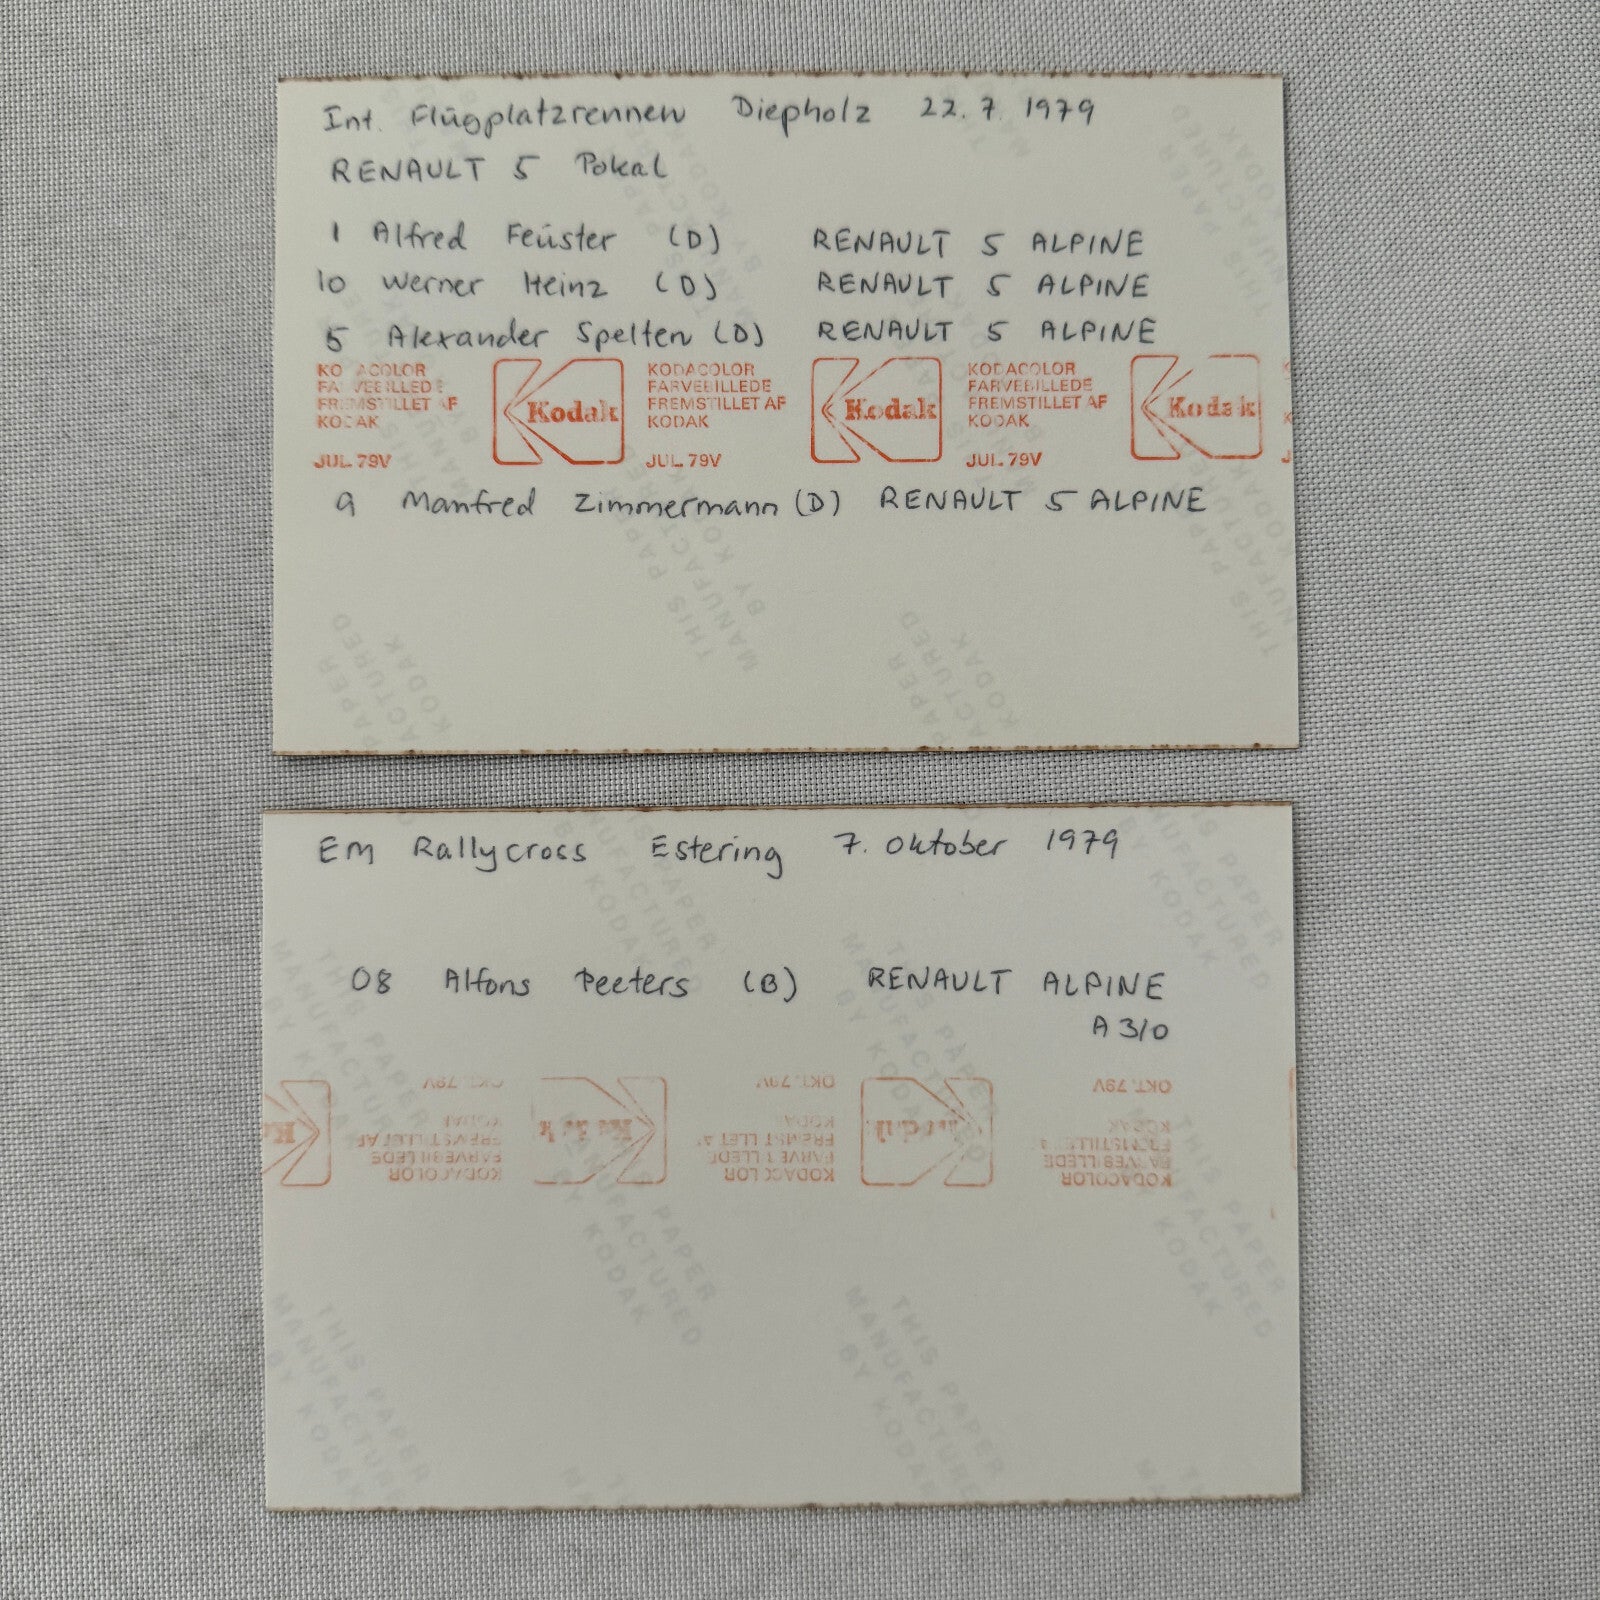 Int. Flügplatzrennen Diepholz 22.7.1979
RENAULT 5 Pokal
1 Alfred Feüster (D) RENAULT 5 ALPINE
10 Werner Heinz (D) RENAULT 5 ALPINE
5 Alexander Spelten (D) RENAULT 5 ALPINE
KODACOLOR FARVEBILLEDE FREMSTILLET AF KODAK JUL. 79V
Kodak
KODACOLOR FARVEBILLEDE FREMSTILLET AF KODAK JUL. 79V
Kodak
KODACOLOR FARVEBILLEDE FREMSTILLET AF KODAK JUL. 79V
Kodak
9 Manfred Zimmermann (D) RENAULT 5 ALPINE
THIS PAPER
MANUFACTURED
BY KODAK
EM Rallycross Estering 7. Oktober 1979
08 Alfons Peeters (B) RENAULT ALPINE
A 310
KODACOLOR FARVEBILLEDE FREMSTILLET AF KODAK OKT. 79V
Kodak
KODACOLOR FARVEBILLEDE FREMSTILLET AF KODAK OKT. 79V
Kodak
KODACOLOR FARVEBILLEDE FREMSTILLET AF KODAK OKT. 79V
THIS PAPER
MANUFACTURED
BY KODAK